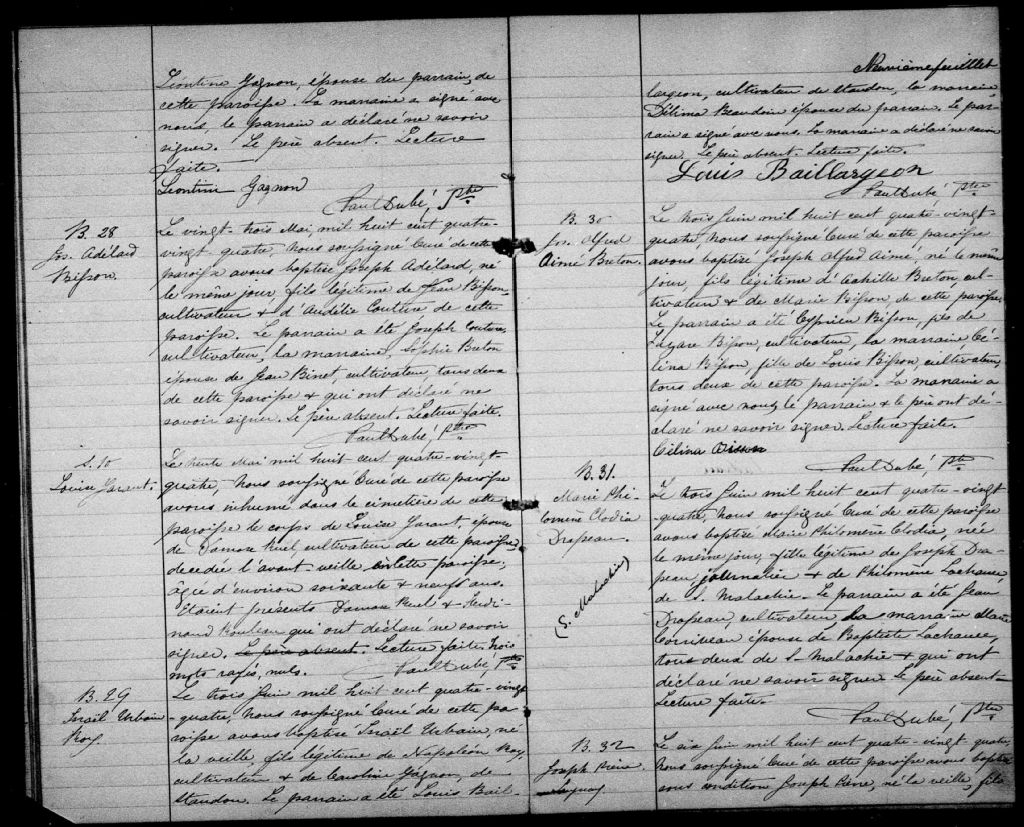 Léontine Gagnon, épouse du parrain, de
cette paroisse. La marraine a signé avec
nous, le parrain a déclaré ne savoir
signer. Le père absent. Lecture
faite.
Léontine Gagnon
Paul Dubé, Ptre
B. 28
Jos. Adélard
Bisson.
Le vingt-trois Mai, mil huit cent quatre-
vingt-quatre, Nous soussigné Curé de cette
paroisse avons baptisé Joseph Adélard, né
le même jour, fils légitime de Jean Bisson,
cultivateur & d'Audélie Couture, de cette
paroisse. Le parrain a été Joseph Couture,
cultivateur, la marraine, Sophie Breton
épouse de Jean Binet, cultivateur tous deux
de cette paroisse & qui ont déclaré ne
savoir signer. Le père absent. Lecture faite.
Paul Dubé, Ptre
S. 10
Louise Garant.
Le trente Mai mil huit cent quatre-vingt
quatre, Nous soussigné Curé de cette paroisse
avons inhumé dans le cimetière de cette
paroisse le corps de Louise Garant, épouse
de Damase Ruel cultivateur de cette paroisse,
decedée l'avant veille en cette paroisse,
âgée d'environ soixante & neuf ans.
Etaient présents Damase Ruel & Ferdi-
nand Rouleau qui ont déclaré ne savoir
signer. Le père absent. Lecture faite. Trois
mots rayés, nuls. Paul Dubé, Ptre
B. 29
Israël Urbain
Roy.
Le trois Juin mil huit cent quatre-vingt
quatre, Nous soussigné Curé de cette pa-
roisse avons baptisé Israël Urbain, né
la veille, fils légitime de Napoléon Roy,
cultivateur & de Caroline Gagnon, de
Standon. Le parrain a été Louis Bail-
Neuvième feuillet
largeon, cultivateur de Standon, la marraine
Délima Beaudoin épouse du parrain. Le par-
rain a signé avec nous. La marraine a déclaré ne savoir
signer. Le père absent. Lecture faite.
Louis Baillargeon
Paul Dubé, Ptre
B. 30
Jos. Alfred
Aimé Breton.
Le trois Juin mil huit cent quatre-vingt-
quatre, Nous soussigné Curé de cette paroisse
avons baptisé Joseph Alfred Aimé, né le même
jour, fils légitime d'Achille Breton, cul-
tivateur & de Marie Bisson, de cette paroisse.
Le parrain a été Cyprien Bisson, fils de
Lazare Bisson, cultivateur, la marraine, Cé-
lina Bisson, fille de Louis Bisson, cultivateur,
tous deux de cette paroisse. La marraine a
signé avec nous, le parrain & le père ont dé-
claré ne savoir signer. Lecture faite.
Célina Bisson
Paul Dubé, Ptre
B. 31.
Marie Phi-
lomène Clodia
Drapeau.
(S. Malachie)
Le trois Juin mil huit cent quatre-vingt
quatre, Nous soussigné Curé de cette paroisse
avons baptisé Marie Philomène Clodia, née
le même jour, fille légitime de Joseph Dra-
peau, journalier & de Philomène Lachance,
de S. Malachie. Le parrain a été Jean
Drapeau, cultivateur, la marraine Marie
Corriveau épouse de Baptiste Lachance,
tous deux de S. Malachie & qui ont
déclaré ne savoir signer. Le père absent.
Lecture faite.
Paul Dubé, Ptre
B. 32
Joseph Pierre
Le six Juin mil huit cent quatre-vingt quatre,
Nous soussigné Curé de cette paroisse avons baptisé
sous condition Joseph Pierre, né la veille, fils